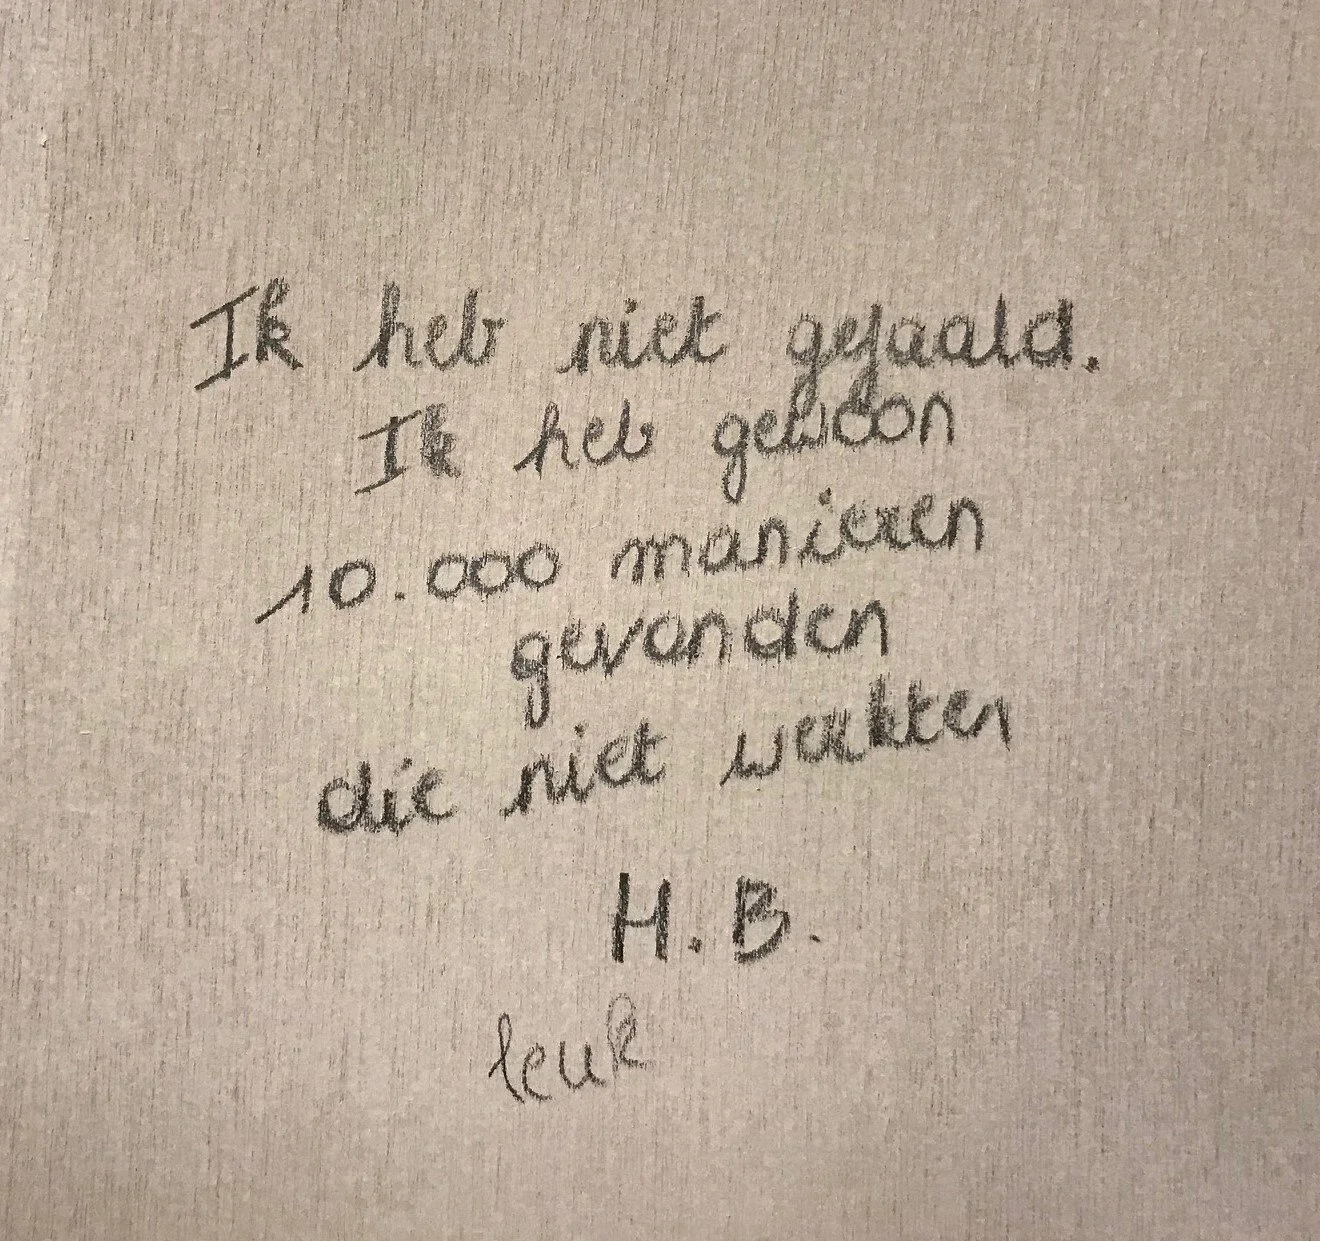 Ik heb niet gefaald.
Ik heb gewoon
10.000 manieren
gevonden
die niet werkten
H.B.
leuk